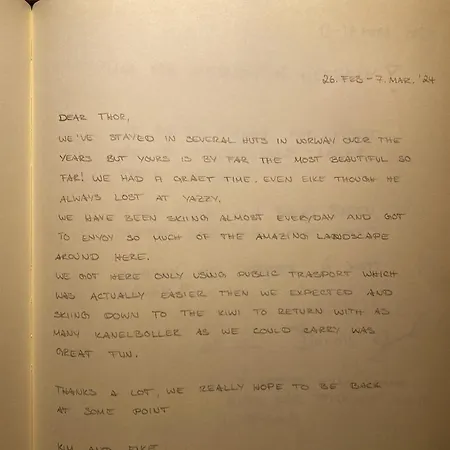 26. FEB - 7. MAR. '24
DEAR THOR,
WE'VE STAYED IN SEVERAL HUTS IN NORWAY OVER THE
YEARS BUT YOURS IS BY FAR THE MOST BEAUTIFUL SO
FAR! WE HAD A GRAET TIME. EVEN EIKE THOUGH HE
ALWAYS LOST AT YAZZY.
WE HAVE BEEN SKIING ALMOST EVERYDAY AND GOT
TO ENYOY SO MUCH OF THE AMAZING LANDSCAPE
AROUND HERE.
WE GOT HERE ONLY USING PUBLIC TRASPORT WHICH
WAS ACTUALLY EASIER THEN WE EXPECTED AND
SKIING DOWN TO THE KIWI TO RETURN WITH AS
MANY KANELBOLLER AS WE COULD CARRY WAS
GREAT FUN.
THANKS A LOT, WE REALLY HOPE TO BE BACK
AT SOME POINT
AND EIKE